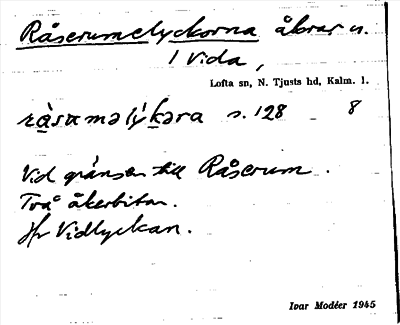 Råserumslyckorna åkrar n.
1 Vida,
Lofta sn, N. Tjusts hd, Kalm. l.
s. 128 8
Vid gränsen till Råserum.
Två åkerbitar.
Jfr Vidlyckan.
Ivar Modéer 1945